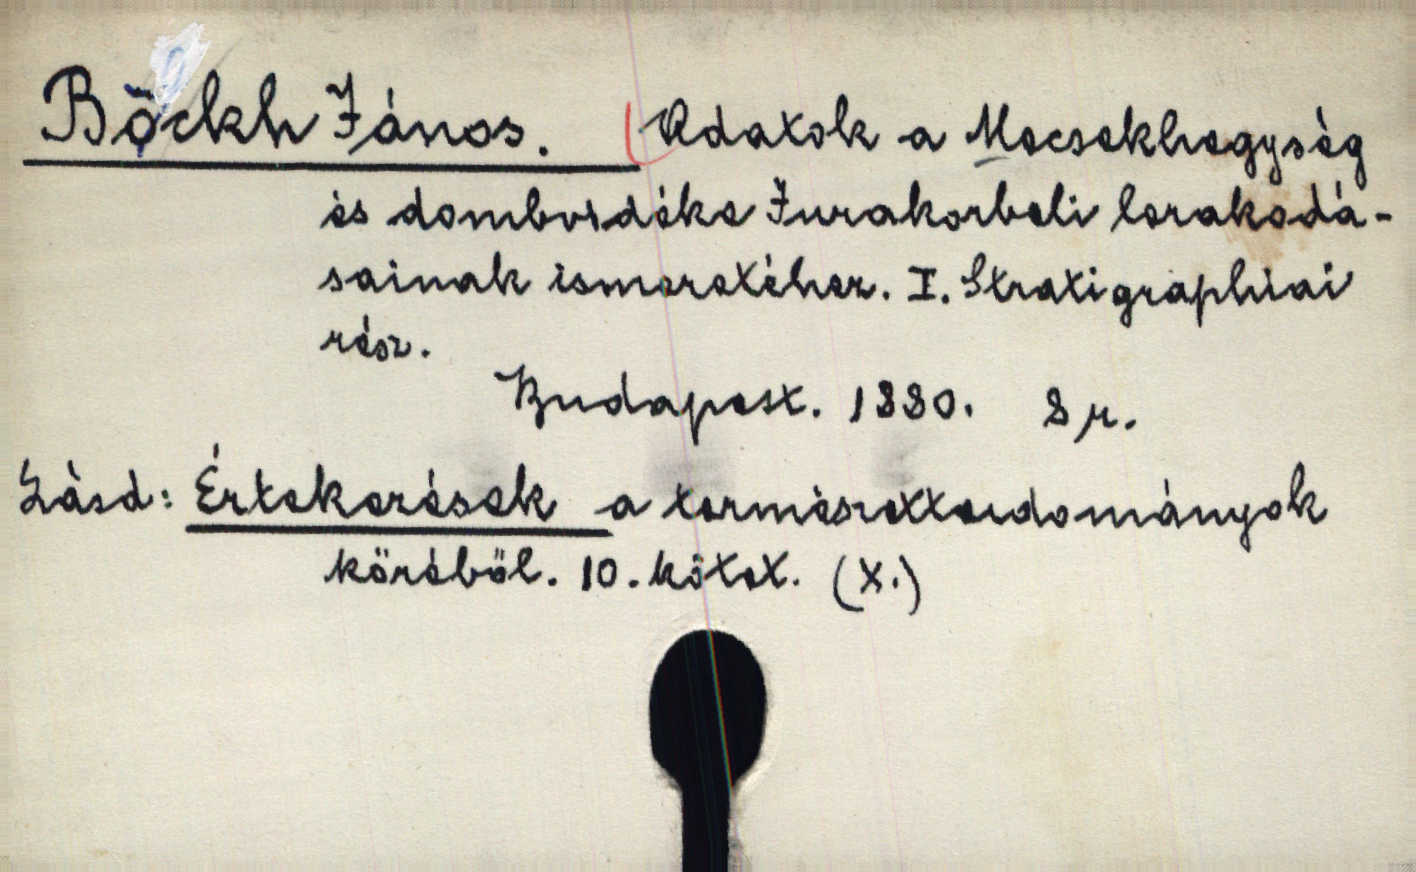 Böckh János. Adatok a Mecsekhegység
és dombvidéke Jurakorbeli lerakodá-
sainak ismeretéhez. I. Stratigraphiai
rész.
Budapest. 1880. 8 r.
Lásd: Értekezések a természettudományok
köréből. 10. kötet. (X.)